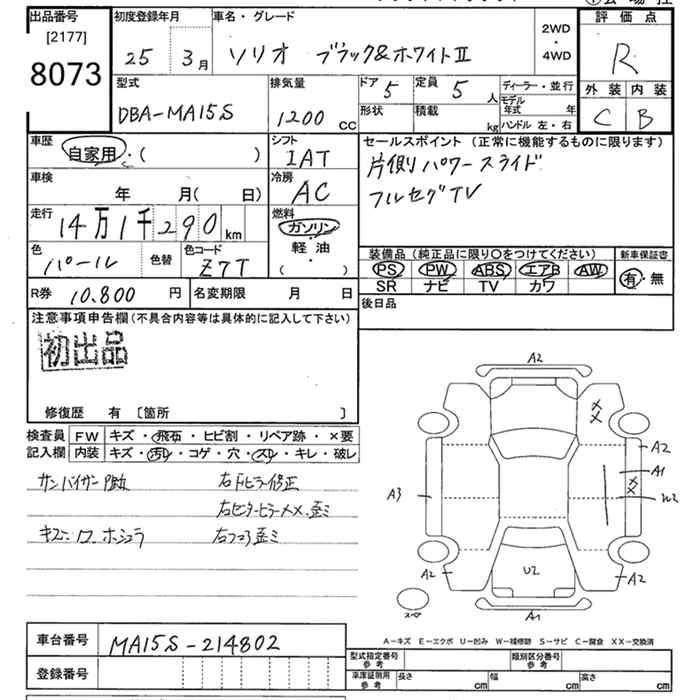 出品番号
[2177]
8073
初度登録年月
25 年 3 月
車名・グレード
ソリオ ブラック&ホワイトII
2WD
・
4WD
評価点
R
外装 内装
C B
型式
DBA-MA15S
排気量
1200 cc
ドア 5
定員 5 人
形状
積載 kg
ディーラー・並行
モデル年式 年
ハンドル 左・右
車歴
自家用・( )
シフト
IAT
セールスポイント (正常に機能するものに限ります)
片側パワースライド
フルセグTV
車検
年 月( 日)
冷房
AC
走行
14万1千290 km
燃料
ガソリン
軽・油
( )
色
パール
色替
色コード
Z7T
装備品 (純正品に限り○をつけてください)
新車保証書
PS PW ABS エアB AW
有・無
SR ナビ TV カワ
R券 10.800 円
名変期限 月 日
後日品
注意事項申告欄 (不具合内容等は具体的に記入して下さい)
初出品
修復歴 有 [箇所 ]
検査員記入欄
FW キズ・飛石・ヒビ割・リペア跡・×要
内装 キズ・汚れ・コゲ・穴・スレ・キレ・破レ
サンバイザー
右Fピラー修正
右センターピラー××、歪ミ
キズ
A2
××
A2
A1
××
W2
A3
A2
U2
A2
スペア
A1
A-キズ E-エクボ U-凹み W-補修跡 S-サビ C-腐食 XX-交換済
車台番号
MA15S-214802
登録番号
型式指定番号
参考
類別区分番号
参考
車庫証明用
参考
長さ cm
幅 cm
高さ cm